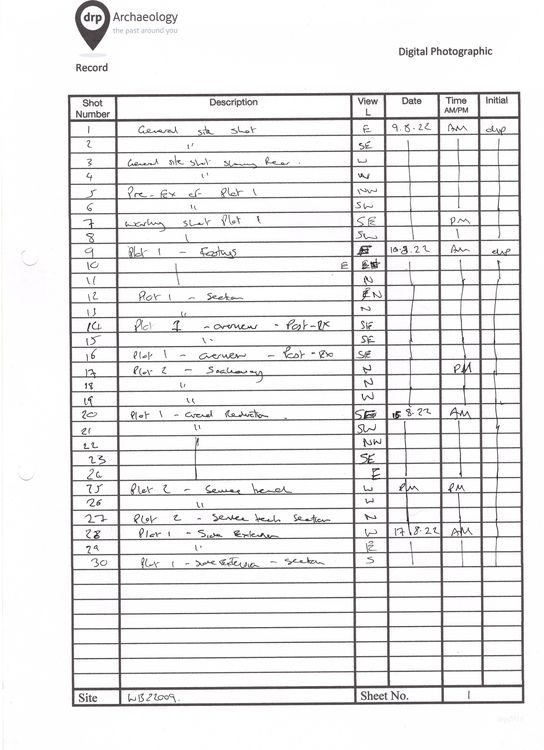 drp Archaeology
the past around you
Digital Photographic
Record
Shot Number Description View L Date Time AM/PM Initial
1 General site shot E 9.8.22 AM drp
2 " SE
3 General site shot showing Rear. W
4 " W
5 Pre-Ex of Plot 1 NW
6 " SW
7 working shot Plot 1 SE PM
8 SW
9 Plot 1 - Footings 10.8.22 AM drp
10 E
11 N
12 Plot 1 - Section N
13 " N
14 Plot 1 - overview - Post-Ex SE
15 " SE
16 Plot 1 - overview - Post-Ex SE
17 Plot 2 - Soakaway N PM
18 " N
19 " W
20 Plot 1 - Ground Reduction. SE 15.8.22 AM
21 " SW
22 NW
23 SE
24 E
25 Plot 2 - Service trench W PM PM
26 " W
27 Plot 2 - Service trench Section N
28 Plot 1 - Side Extension W 17.8.22 AM
29 " E
30 Plot 1 - Side Extension - section S
Site WB22009. Sheet No. 1